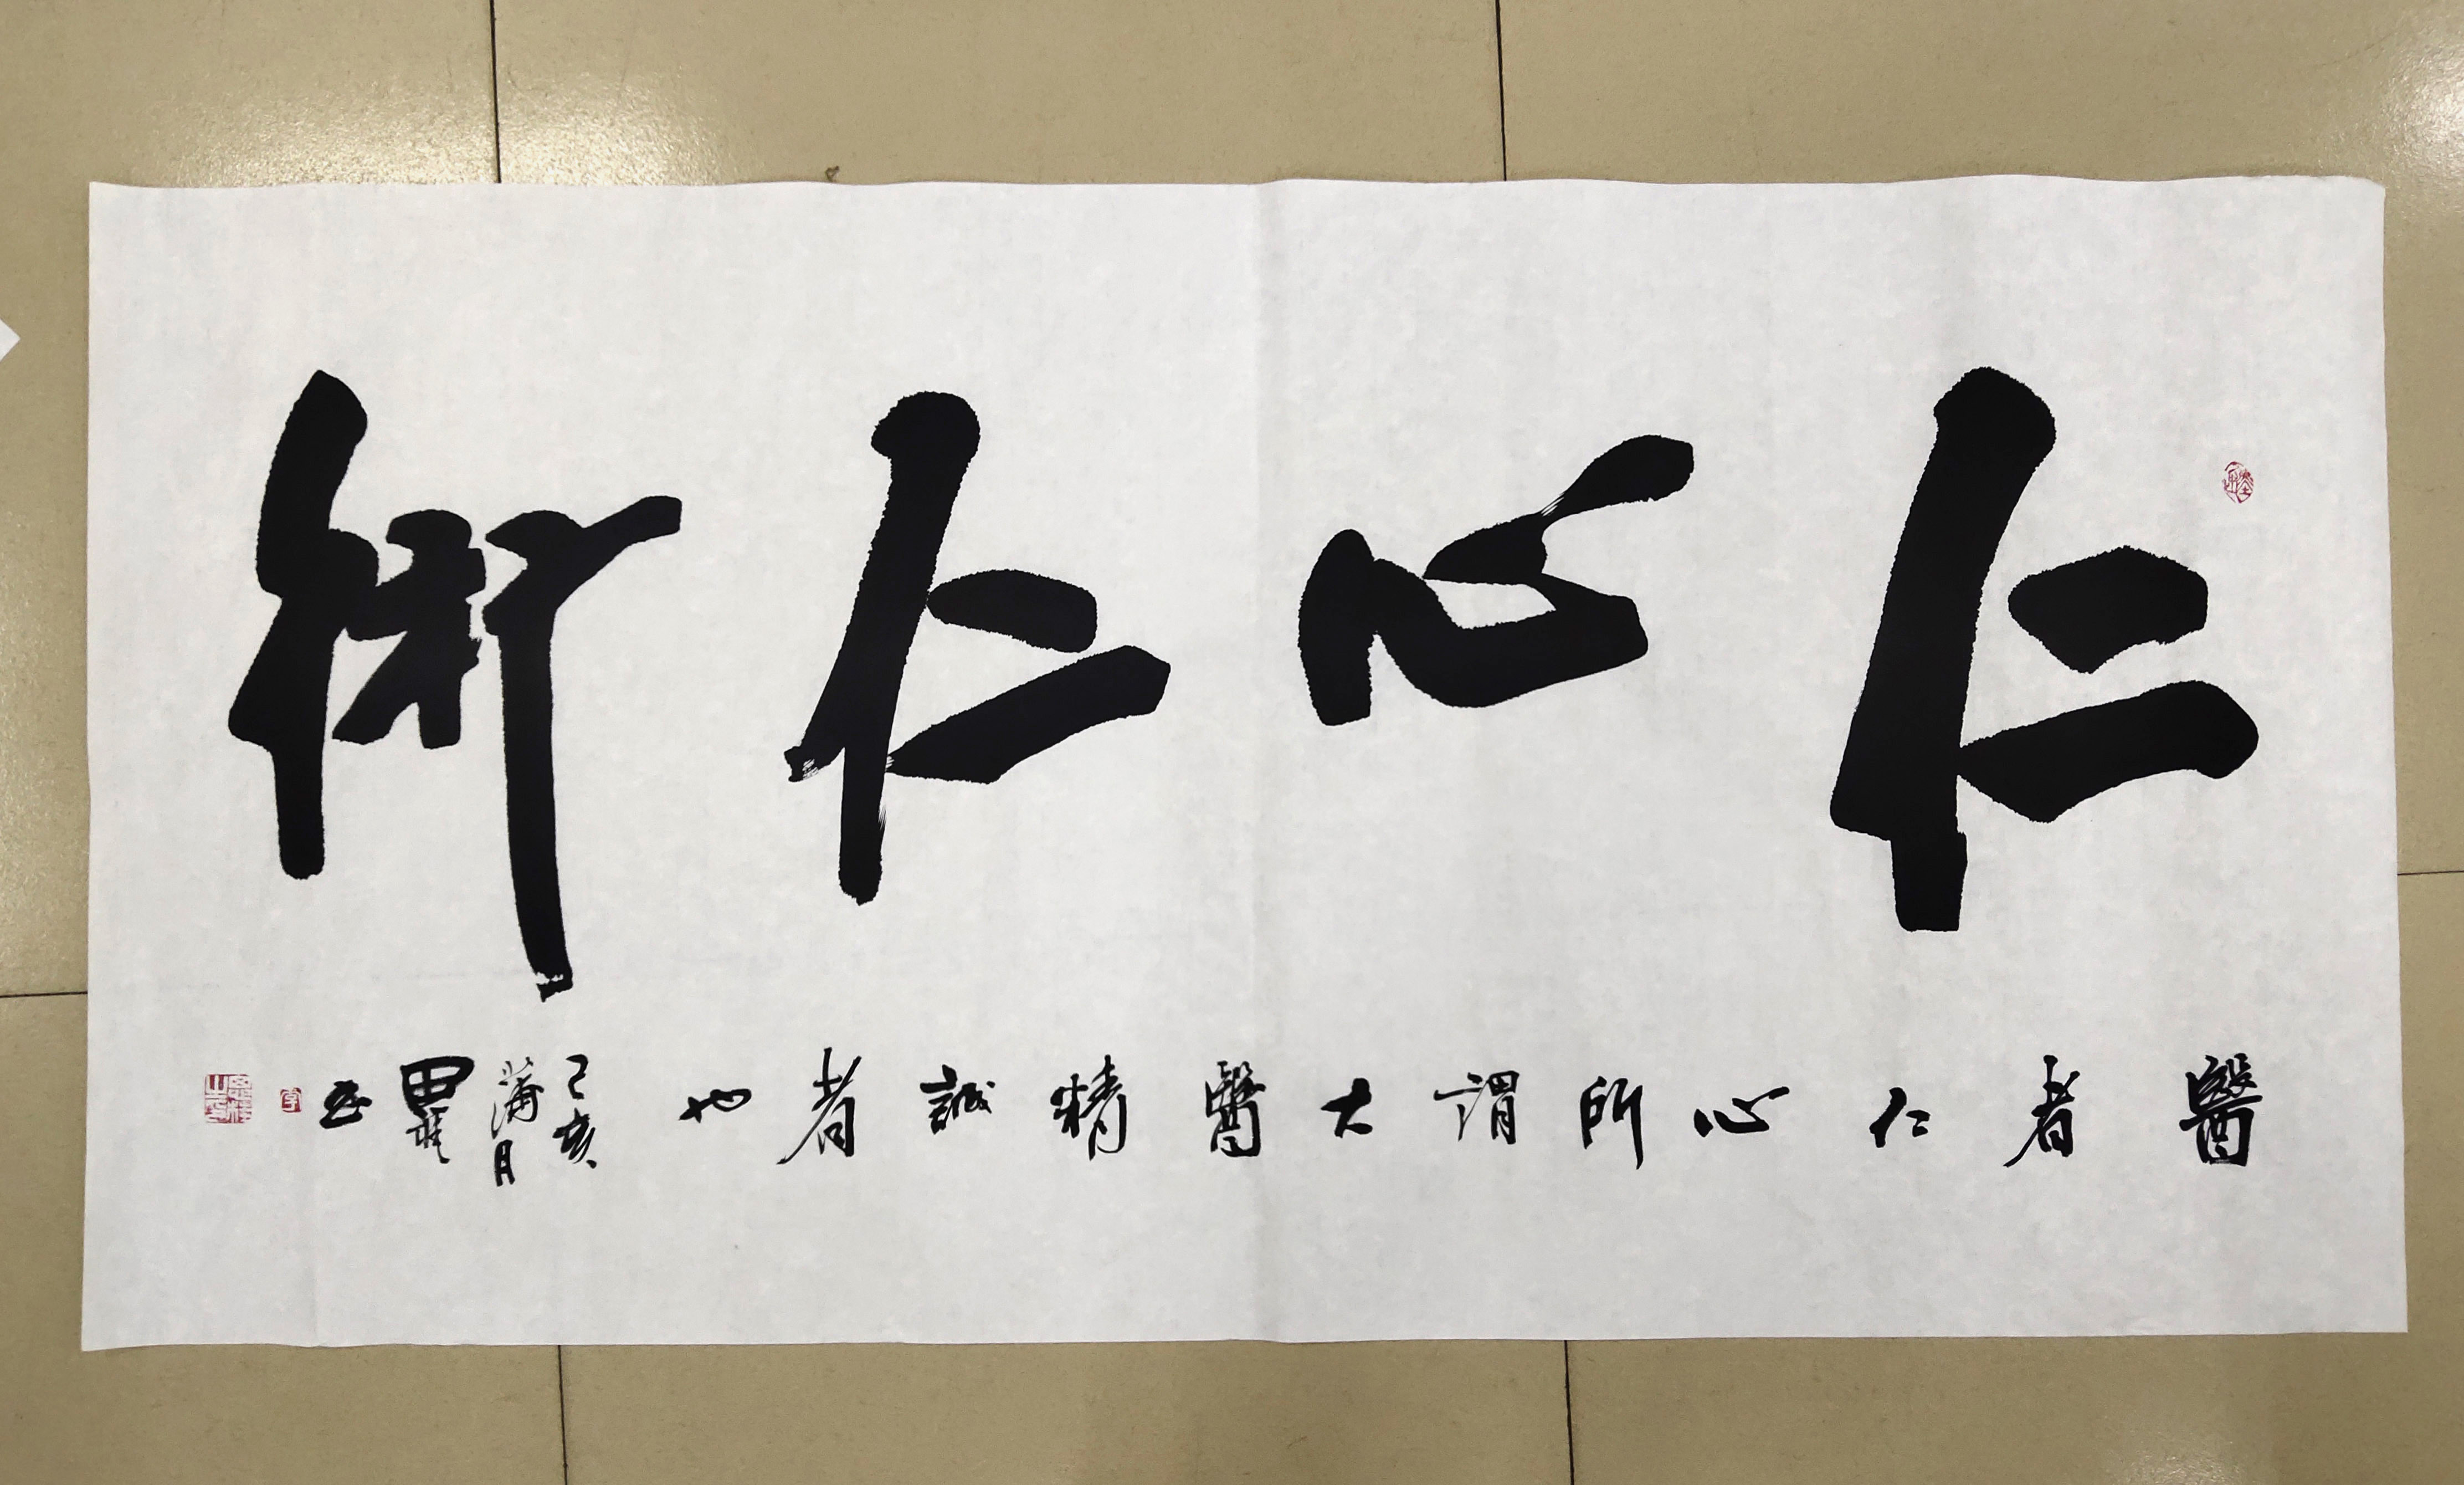 仁心仁術
醫者仁心所謂大醫精誠者也
己亥
蒲月